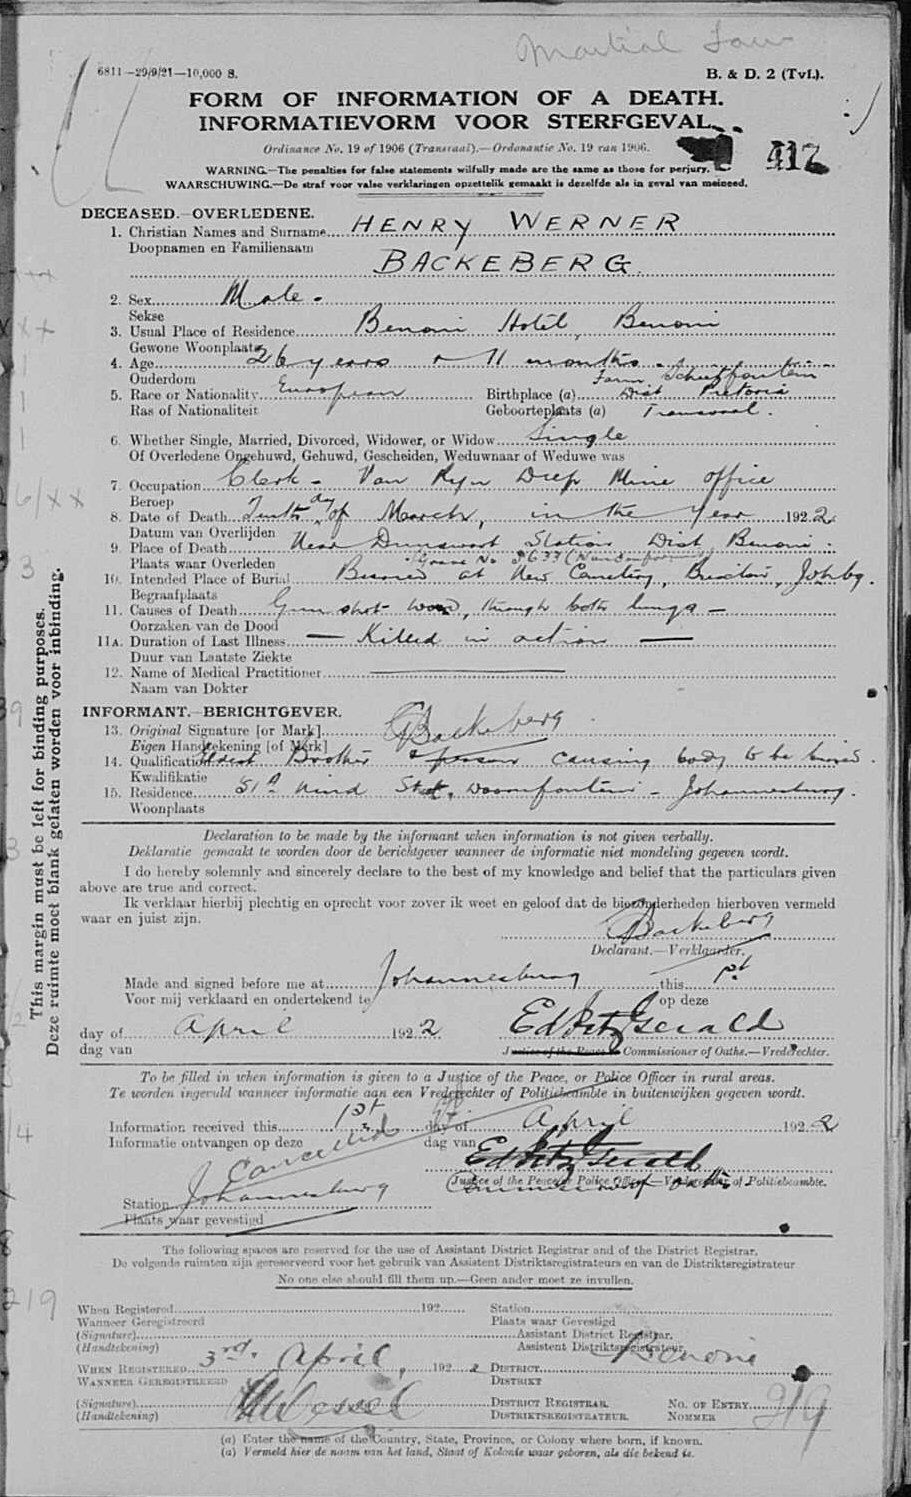 Martial Law
6811—29/9/21—10,000 S.
B. & D. 2 (Tvl.).
FORM OF INFORMATION OF A DEATH.
INFORMATIEVORM VOOR STERFGEVAL.
Ordinance No. 19 of 1906 (Transvaal).—Ordonantie No. 19 van 1906.
417
WARNING.—The penalties for false statements wilfully made are the same as those for perjury.
WAARSCHUWING.—De straf voor valse verklaringen opzettelik gemaakt is dezelfde als in geval van meineed.
DECEASED.—OVERLEDENE.
1. Christian Names and Surname HENRY WERNER
Doopnamen en Familienaam
BACKEBERG
2. Sex Male.
Sekse
3. Usual Place of Residence Benoni Hotel, Benoni
Gewone Woonplaats
4. Age 26 years & 11 months.
Ouderdom
Farm
5. Race or Nationality European Birthplace (a) Dist Pretoria
Ras of Nationaliteit Geboorteplaats (a) Transvaal.
6. Whether Single, Married, Divorced, Widower, or Widow Single
Of Overledene Ongehuwd, Gehuwd, Gescheiden, Weduwnaar of Weduwe was
7. Occupation Clerk - Van Ryn Deep Mine office
Beroep
8. Date of Death Tenth day of March, in the year 1922
Datum van Overlijden
9. Place of Death Near Dunswart Station Dist Benoni.
Plaats waar Overleden
Grave No
10. Intended Place of Burial Buried at New Cemetery, Brixton, Johbg.
Begraafplaats
11. Causes of Death Gun shot wound, through both lungs —
Oorzaken van de Dood
11A. Duration of Last Illness — Killed in action —
Duur van Laatste Ziekte
12. Name of Medical Practitioner
Naam van Dokter
INFORMANT.—BERICHTGEVER.
13. Original Signature [or Mark] Backeberg
Eigen Handtekening [of Merk]
14. Qualification Eldest Brother & person causing body to be buried.
Kwalifikatie
15. Residence 51A Hind Street, Doornfontein - Johannesburg.
Woonplaats
Declaration to be made by the informant when information is not given verbally.
Deklaratie gemaakt te worden door de berichtgever wanneer de informatie niet mondeling gegeven wordt.
I do hereby solemnly and sincerely declare to the best of my knowledge and belief that the particulars given
above are true and correct.
Ik verklaar hierbij plechtig en oprecht voor zover ik weet en geloof dat de biezonderheden hierboven vermeld
waar en juist zijn.
Backeberg
Declarant.—Verklaarder.
Made and signed before me at Johannesburg this 1st
Voor mij verklaard en ondertekend te op deze
day of April 1922 Ed FitzGerald
dag van Justice of the Peace or Commissioner of Oaths.—Vrederechter.
To be filled in when information is given to a Justice of the Peace, or Police Officer in rural areas.
Te worden ingevuld wanneer informatie aan een Vrederechter of Politiebeambte in buitenwijken gegeven wordt.
Information received this 1st day of April 1922
Informatie ontvangen op deze dag van
Cancelled
Ed FitzGerald
Justice of the Peace or Police Officer.—Vrederechter of Politiebeambte.
Commissioner of Oaths
Station Johannesburg
Plaats waar gevestigd
The following spaces are reserved for the use of Assistant District Registrar and of the District Registrar.
De volgende ruimten zijn gereserveerd voor het gebruik van Assistent Distriktsregistrateurs en van de Distriktsregistrateur
No one else should fill them up.—Geen ander moet ze invullen.
When Registered 192 Station
Wanneer Geregistreerd Plaats waar Gevestigd
(Signature) Assistant District Registrar.
(Handtekening) Assistent Distriktsregistrateur.
WHEN REGISTERED 3rd. April, 1922 DISTRICT Benoni
WANNEER GEREGISTREERD DISTRIKT
(Signature) Wessel DISTRICT REGISTRAR. NO. OF ENTRY 219
(Handtekening) DISTRIKTSREGISTRATEUR. NOMMER
(a) Enter the name of the Country, State, Province, or Colony where born, if known.
(a) Vermeld hier de naam van het land, Staat of Kolonie waar geboren, als die bekend is.
This margin must be left for binding purposes.
Deze ruimte moet blank gelaten worden voor inbinding.